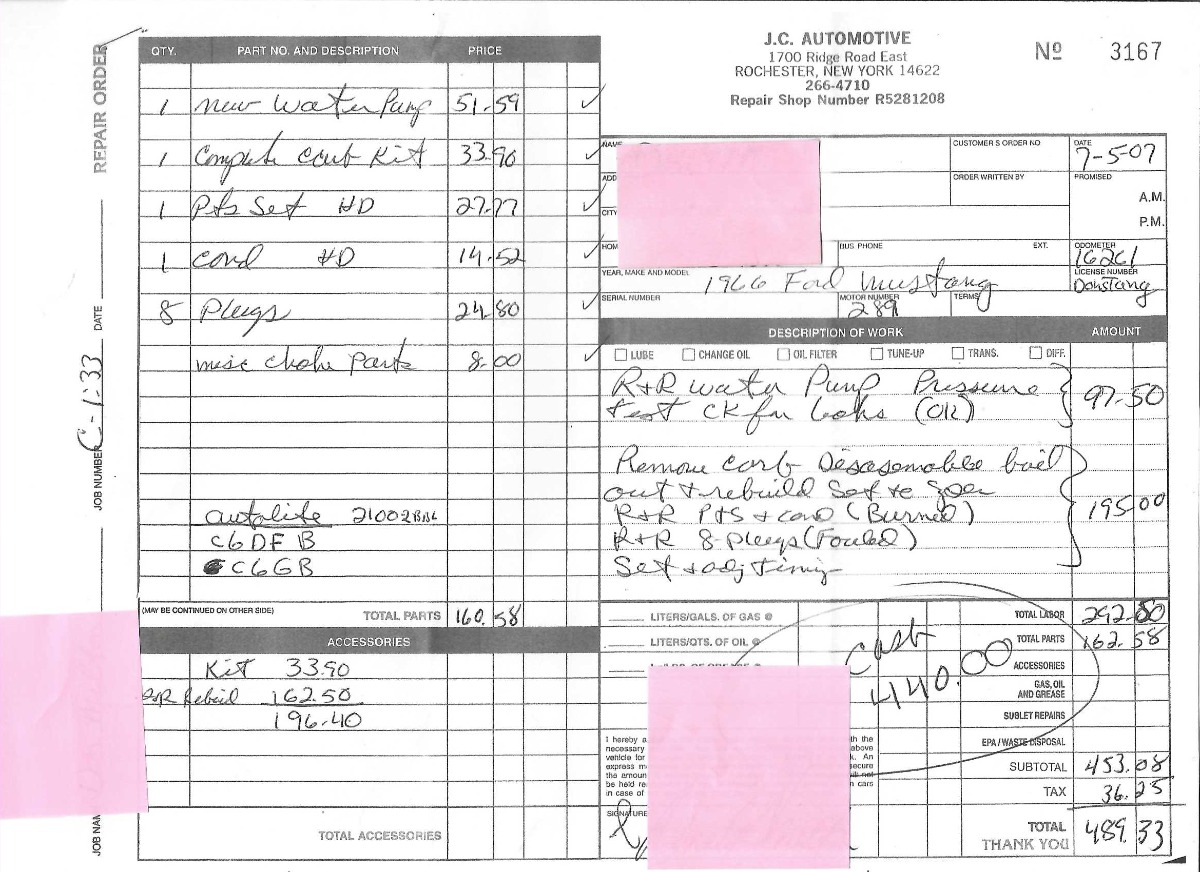 REPAIR ORDER
DATE
JOB NUMBER C-1:33
JOB NAM
QTY. PART NO. AND DESCRIPTION PRICE
1 new water Pump 51.59 ✓
1 Complete carb Kit 33.90 ✓
1 Pts Set HD 27.77 ✓
1 cond HD 14.52 ✓
8 Plugs 24.80 ✓
misc choke parts 8.00 ✓
autolite 2100 2BBL
C6DF B
C6GB
(MAY BE CONTINUED ON OTHER SIDE) TOTAL PARTS 160.58
ACCESSORIES
Kit 33.90
R&R Rebuild 162.50
196.40
TOTAL ACCESSORIES
J.C. AUTOMOTIVE
1700 Ridge Road East
ROCHESTER, NEW YORK 14622
266-4710
Repair Shop Number R5281208
Nº 3167
NAME
CUSTOMER'S ORDER NO
DATE 7-5-07
ADD
ORDER WRITTEN BY
PROMISED
A.M.
P.M.
CITY
HOM
BUS PHONE EXT.
ODOMETER 16261
YEAR, MAKE AND MODEL 1966 Ford Mustang
LICENSE NUMBER Donstang
SERIAL NUMBER
MOTOR NUMBER 289
TERMS
DESCRIPTION OF WORK AMOUNT
LUBE CHANGE OIL OIL FILTER TUNE-UP TRANS. DIFF.
R+R water Pump Pressure
test CK for leaks (OK) 97.50
Remove carb Disasemable boil
out + rebuild Set to spec
R+R PTS + cond (Burned) 195.00
R+R 8-plugs (Fouled)
Set + adj timing
LITERS/GALS. OF GAS @
LITERS/QTS. OF OIL @
Cash
440.00
TOTAL LABOR 292.50
TOTAL PARTS 162.58
ACCESSORIES
GAS, OIL
AND GREASE
SUBLET REPAIRS
EPA / WASTE DISPOSAL
SUBTOTAL 453.08
TAX 36.25
TOTAL 489.33
THANK YOU
I hereby a
necessary
vehicle for
express m
the amoun
be held re
in case of
th the
above
k. An
secure
ill not
n cars
SIGNATURE